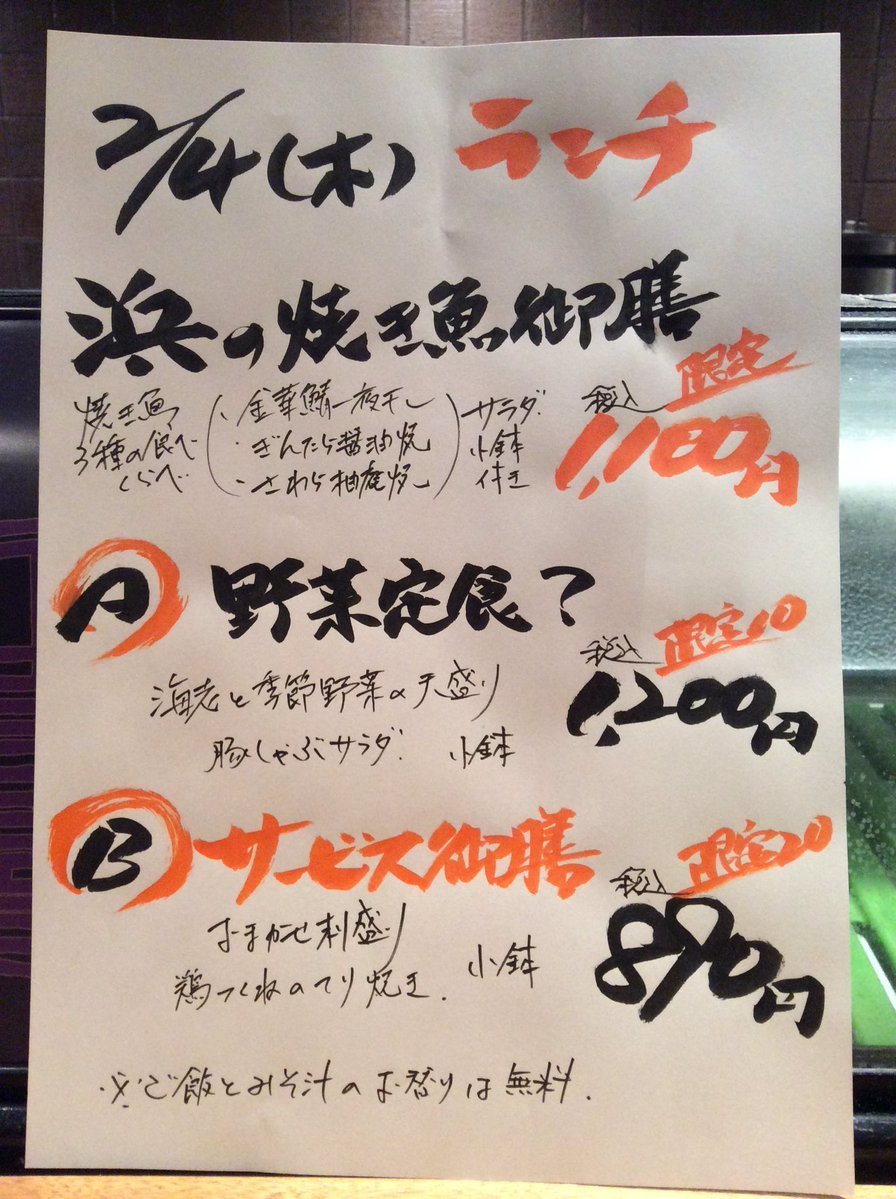 2/4(木) ランチ
浜の焼き魚御膳
焼き魚
3種の食べ
くらべ
・金華鯖一夜干し
・ぎんだら醤油焼
・さわら柚庵焼
サラダ
小鉢
付き
税込 限定
1,100円
A 野菜定食?
海老と季節野菜の天盛り
豚しゃぶサラダ 小鉢
税込 限定10
1,200円
B サービス御膳
おまかせ刺盛り
鶏つくねのてり焼き 小鉢
税込 限定20
890円
※ご飯とみそ汁のお替りは無料.